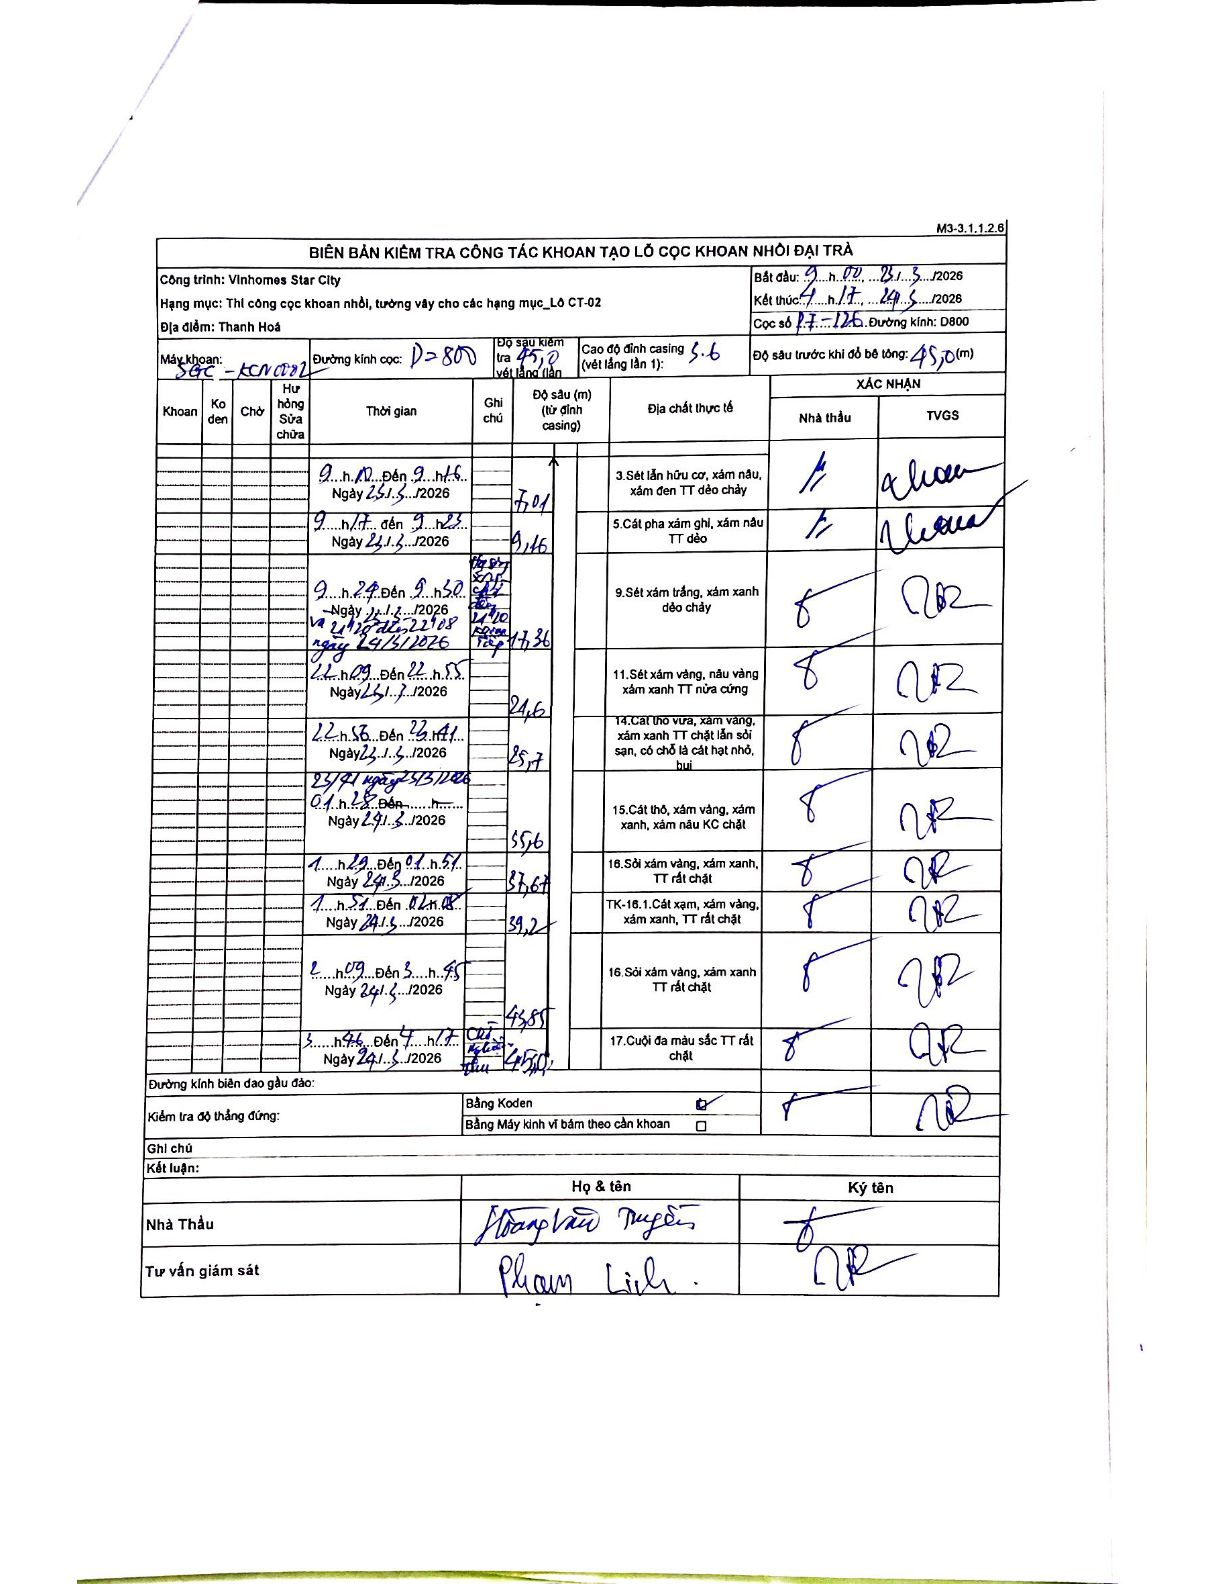 M3-3.1.1.2.6
BIÊN BẢN KIỂM TRA CÔNG TÁC KHOAN TẠO LỖ CỌC KHOAN NHỒI ĐẠI TRÀ
Công trình: Vinhomes Star City
Hạng mục: Thi công cọc khoan nhồi, tường vây cho các hạng mục_Lô CT-02
Địa điểm: Thanh Hoá
Bắt đầu: 9 h 00, 23/3/2026
Kết thúc: 4 h 17, 24/3/2026
Cọc số P7-126 Đường kính: D800
Máy khoan:
Đường kính cọc: D=800
Độ sâu kiểm
tra 45,0
vét lắng (lần
Cao độ đỉnh casing 5.6
(vét lắng lần 1):
Độ sâu trước khi đổ bê tông: 45,0 (m)
Khoan
Ko
den
Chờ
Hư
hỏng
Sửa
chữa
Thời gian
Ghi
chú
Độ sâu (m)
(từ đỉnh
casing)
Địa chất thực tế
XÁC NHẬN
Nhà thầu
TVGS
9 h 10 Đến 9 h 16
Ngày 23/3/2026
7,01
3.Sét lẫn hữu cơ, xám nâu,
xám đen TT dẻo chảy
9 h 17 đến 9 h 23
Ngày 23/3/2026
9,16
5.Cát pha xám ghi, xám nâu
TT dẻo
9 h 24 Đến 9 h 30
Ngày 23/3/2026
và 21h20 đến 22h08
ngày 24/3/2026
17,36
9.Sét xám trắng, xám xanh
dẻo chảy
22 h 09 Đến 22 h 55
Ngày 23/3/2026
24,6
11.Sét xám vàng, nâu vàng
xám xanh TT nửa cứng
22 h 56 Đến 23 h 41
Ngày 23/3/2026
25,7
14.Cát thô vừa, xám vàng,
xám xanh TT chặt lẫn sỏi
sạn, có chỗ là cát hạt nhỏ,
bụi
23h41 ngày 23/3/2026
01 h 28 Đến h
Ngày 24/3/2026
35,6
15.Cát thô, xám vàng, xám
xanh, xám nâu KC chặt
1 h 29 Đến 01 h 51
Ngày 24/3/2026
37,67
16.Sỏi xám vàng, xám xanh,
TT rất chặt
1 h 51 Đến 02 h 08
Ngày 24/3/2026
39,2
TK-16.1.Cát xạm, xám vàng,
xám xanh, TT rất chặt
2 h 09 Đến 3 h 45
Ngày 24/3/2026
43,85
16.Sỏi xám vàng, xám xanh
TT rất chặt
3 h 46 Đến 4 h 17
Ngày 24/3/2026
Chờ
nghiệm
thu
45,0
17.Cuội đa màu sắc TT rất
chặt
Đường kính biên dao gầu đào:
Kiểm tra độ thẳng đứng:
Bằng Koden
Bằng Máy kinh vĩ bám theo cần khoan
Ghi chú
Kết luận:
Họ & tên
Ký tên
Nhà Thầu
Hoàng Văn Truyền
Tư vấn giám sát
Phạm Lịch